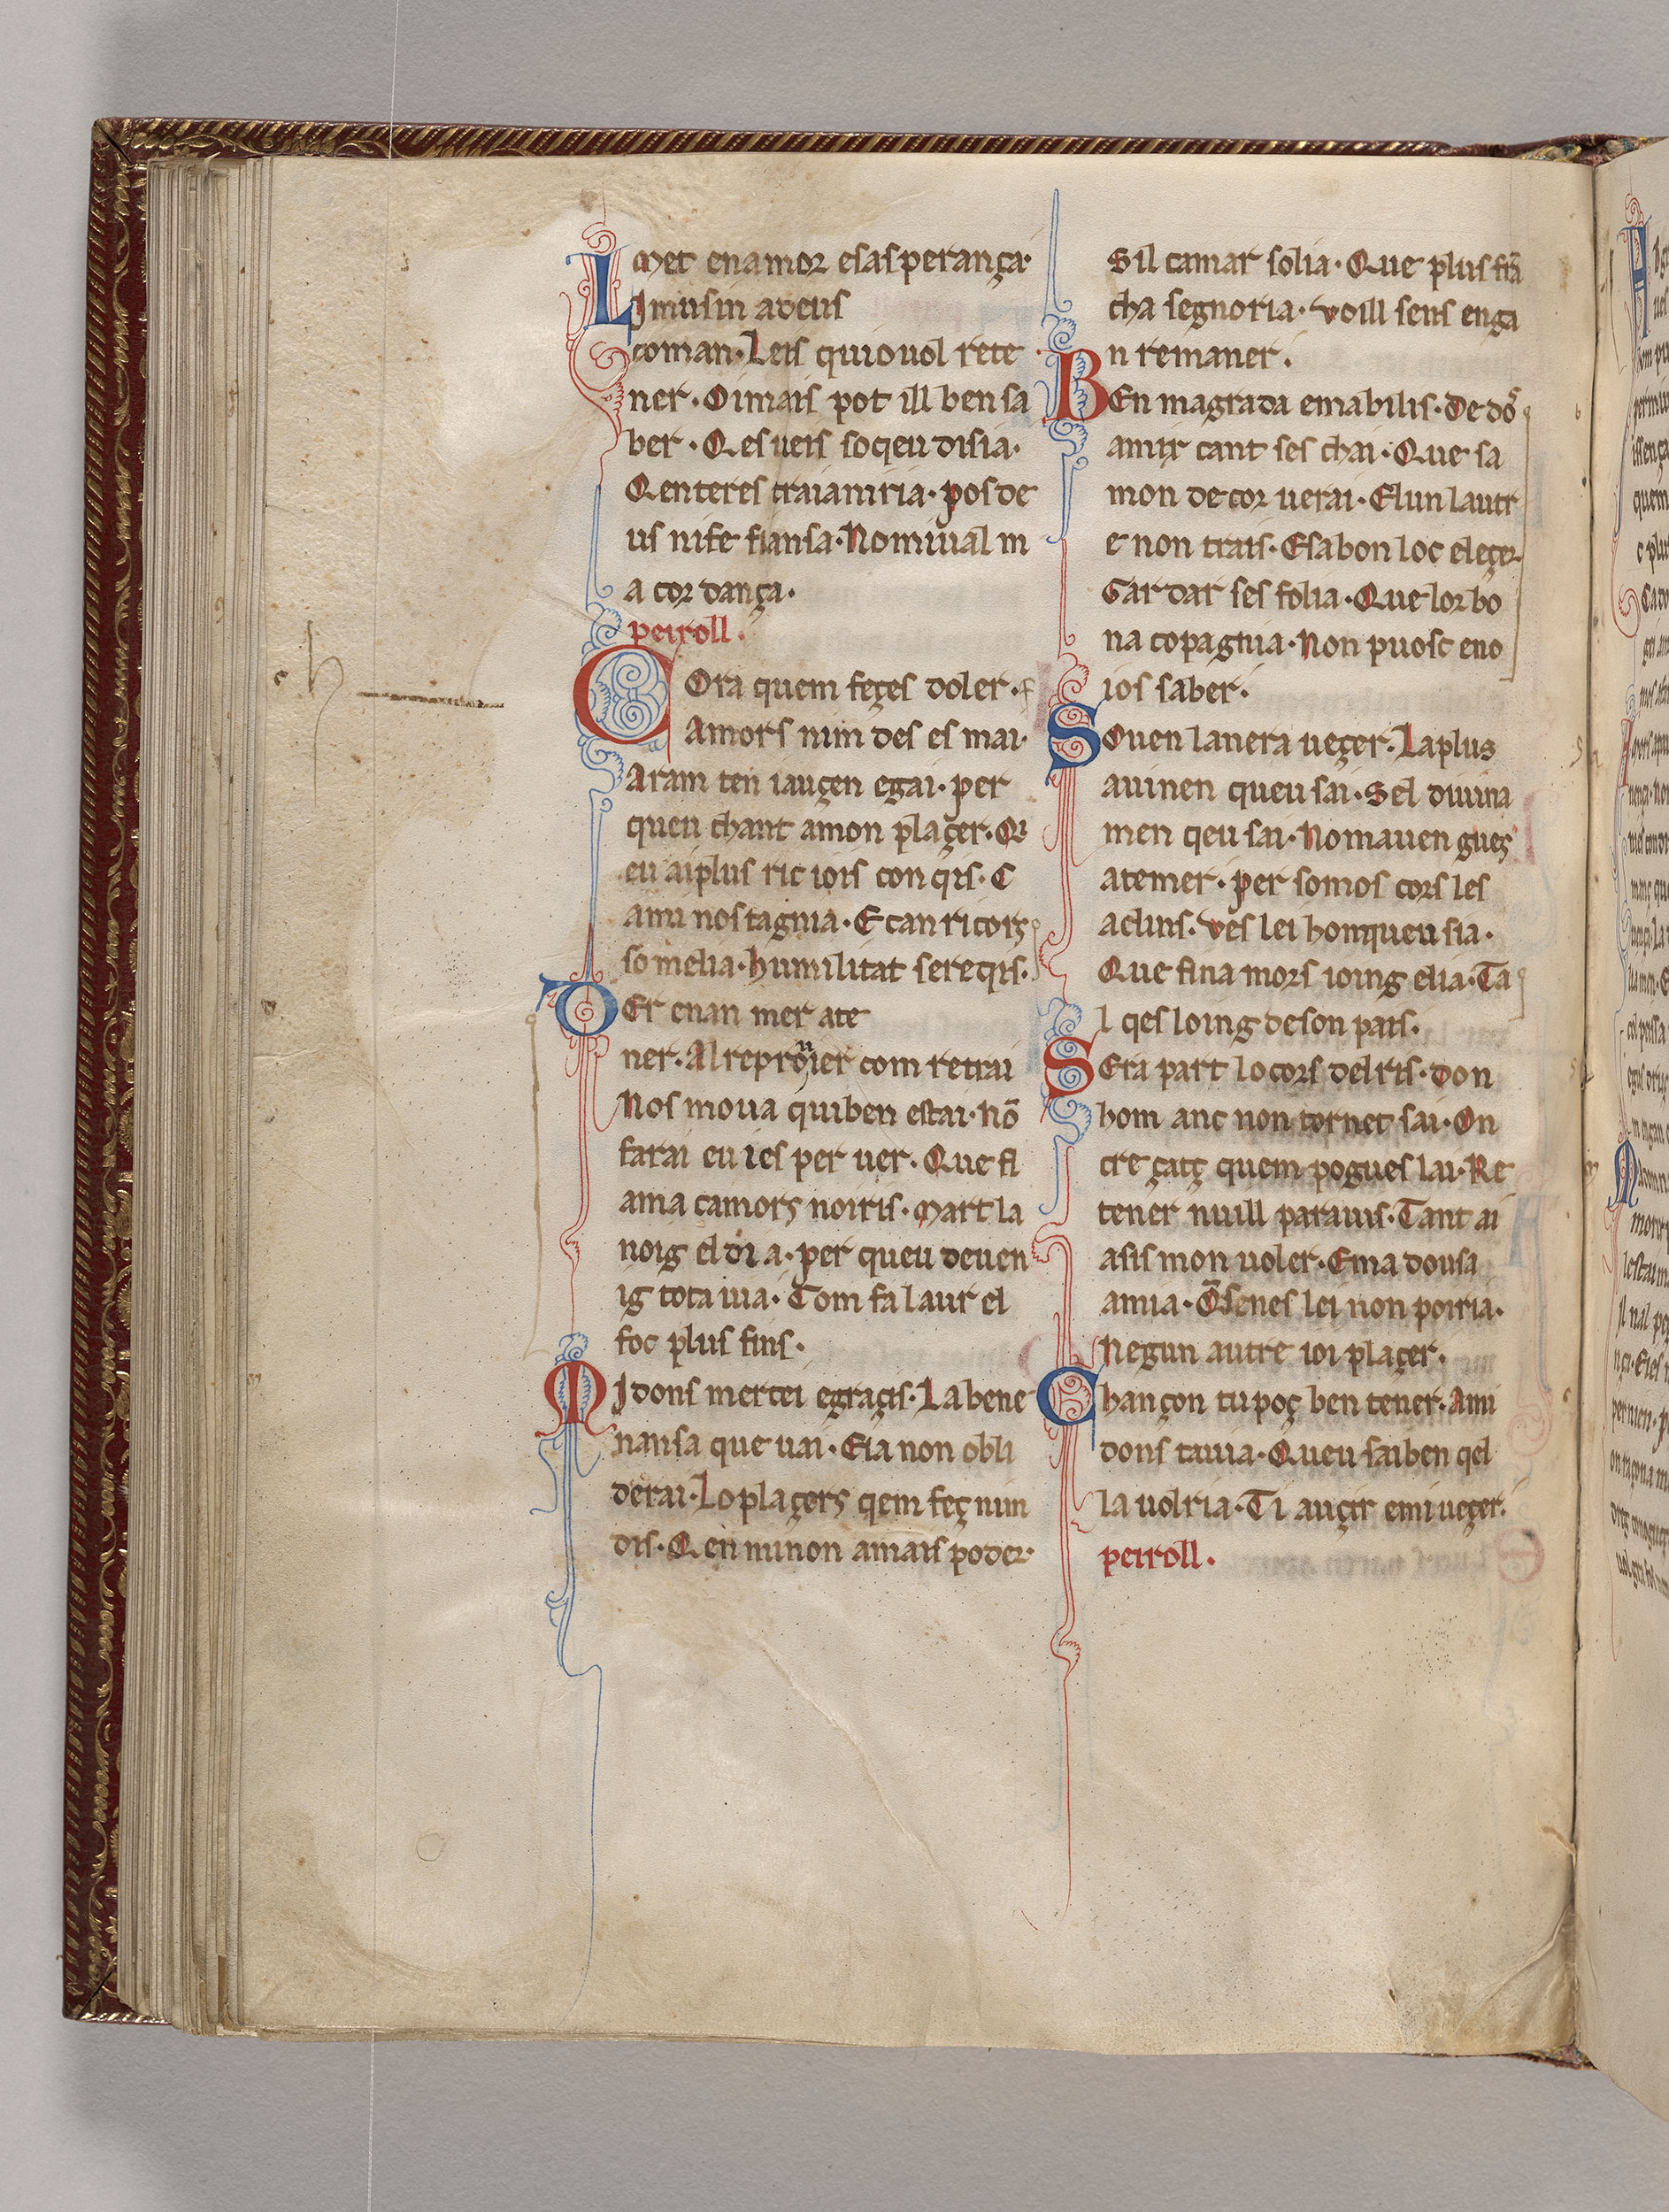 met en amor e sas perança·
Limusin a deus
coman· Leis qui o uol rete
ner· Oimais pot ill ben sa
ber· Q es ueis so qeu disia·
Q en teres traianiria· pos de
us ni fe fiansa· No mi ual m
a cor dança·
peiroll·
Cora quem feçes doler·
Amors nim des es mai·
Aram ten iauçen e gai· per
queu chant a mon plaçer· Qi
eu ai plus ric iois con qis· C
a mi nos tagnia· E can ricors
so melia· humilitat sereqis·
Per enan mer a te
ner· Al reprouier com retrai
Nos moua qui ben estai· nō
farai eu ies per uer· Que fl
ama camors noiris· Mart la
noig el di a· per queu deuen
ig tota uia· Com fa l aur el
foc plus fins·
Midons mercei e graçis· La bene
nansa que uai· Eia non obli
derai· Lo plaçers qem feç nun
dis· Q en mi non a mais poder·
Sil camar solia· Que plus frā
cha segnoria· voill sens enga
n remaner·
Ben magrada em abilis· De dos
amix cant ses chai· Que sa
mon de cor uerai· El un lautr
e non trais· E sa bon loc eleçer·
Gardar ses folia· Que lor bo
na copagnia· Non puosc eno
ios saber·
Souen lanera ueçer· La plus
auinen queu sai· Sel diuina
men qeu sai· No mauen gues
a temer· per so mos cors les
aclins· ves lei hon queu sia·
Que fina mors ioing e lia· Ta
l qes loing de son pais·
Sera part lo cors del ris· don
hom anc non tornet sai· On
creçatç quem pogues lai· Re
tener nuill parauis· Tant ai
asis mon uoler· E ma dousa
amia· Q̄ senes lei non poiria·
Negun autre ioi plaçer·
Chançon tu poç ben tener· A mi
dons ta uia· Queu sai ben qel
la uolria· Ti auçir e mi ueçer·
peiroll·